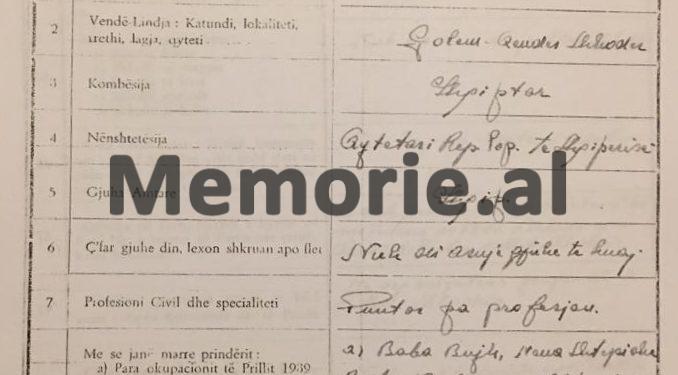 2
Vendë-Lindja : Katundi, lokaliteti,
rrethi, lagja, qyteti
Golem - Qendër Shkodër
3
Kombësija
Shqiptar
4
Nënshtetësija
Qytetari Rep. Pop. te Shqiperisë
5
Gjuha Amtare
Shqip.
6
Ç'far gjuhe din, lexon shkruan apo flet
Nuk di asnje gjuhe te huaj.
7
Profesioni Civil dhe specialiteti
Puntor pa profesjon.
Me se janë marre prindërit :
a) Para okupacionit të Prillit 1939
a) Baba Bujk, Nana Shtëpiake
Memorie.al